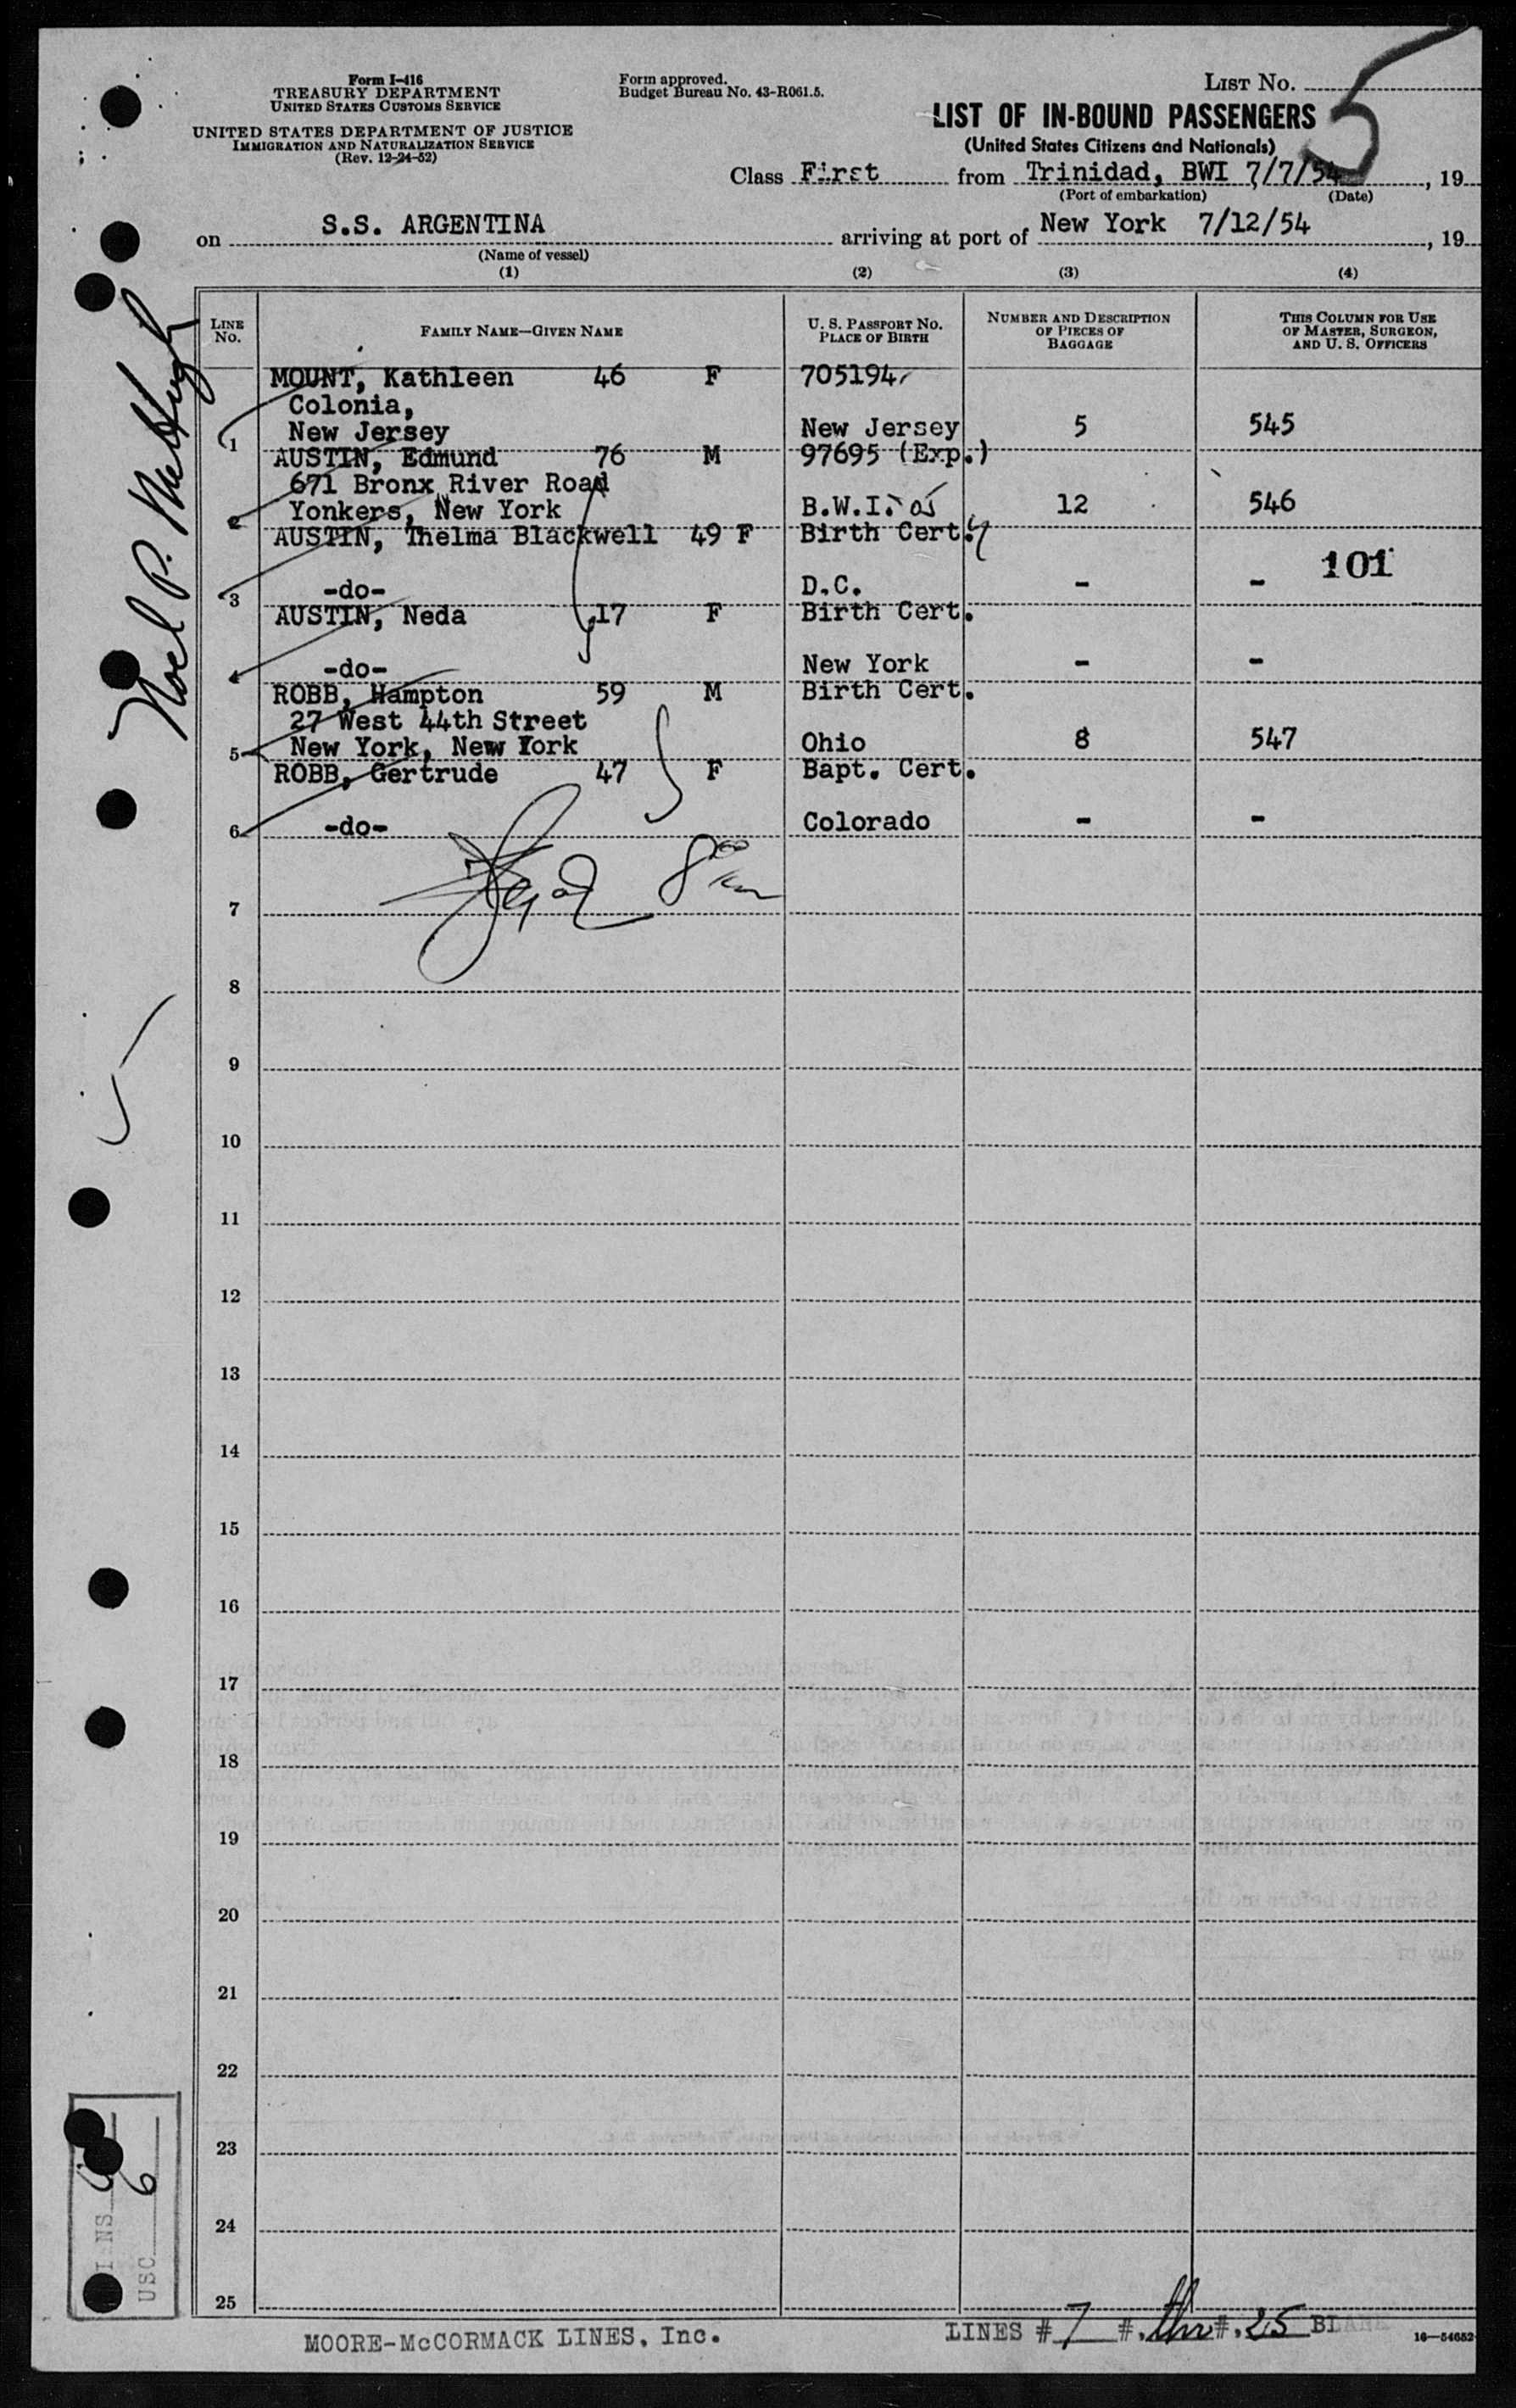 Form I-416
TREASURY DEPARTMENT
UNITED STATES CUSTOMS SERVICE
UNITED STATES DEPARTMENT OF JUSTICE
IMMIGRATION AND NATURALIZATION SERVICE
(Rev. 12-24-52)
Form approved.
Budget Bureau No. 43-R061.5.
LIST NO. 5
LIST OF IN-BOUND PASSENGERS
(United States Citizens and Nationals)
Class First from Trinidad, BWI 7/7/54, 19
(Port of embarkation) (Date)
on S.S. ARGENTINA arriving at port of New York 7/12/54, 19
(Name of vessel)
(1) (2) (3) (4)
LINE NO. FAMILY NAME—GIVEN NAME U. S. PASSPORT NO. PLACE OF BIRTH NUMBER AND DESCRIPTION OF PIECES OF BAGGAGE THIS COLUMN FOR USE OF MASTER, SURGEON, AND U. S. OFFICERS
MOUNT, Kathleen 46 F 705194
Colonia,
1 New Jersey New Jersey 5 545
AUSTIN, Edmund 76 M 97695 (Exp.)
671 Bronx River Road
2 Yonkers, New York B.W.I. 12 546
AUSTIN, Thelma Blackwell 49 F Birth Cert.
101
3 -do- D.C. - -
AUSTIN, Neda 17 F Birth Cert.
4 -do- New York - -
ROBB, Hampton 59 M Birth Cert.
27 West 44th Street
5 New York, New York Ohio 8 547
ROBB, Gertrude 47 F Bapt. Cert.
6 -do- Colorado - -
7
8
9
10
11
12
13
14
15
16
17
18
19
20
21
22
23
24
25
Noel P.
USC 6
MOORE-McCORMACK LINES, Inc.
LINES # 7 # thru # 25 BLANK
16—54652